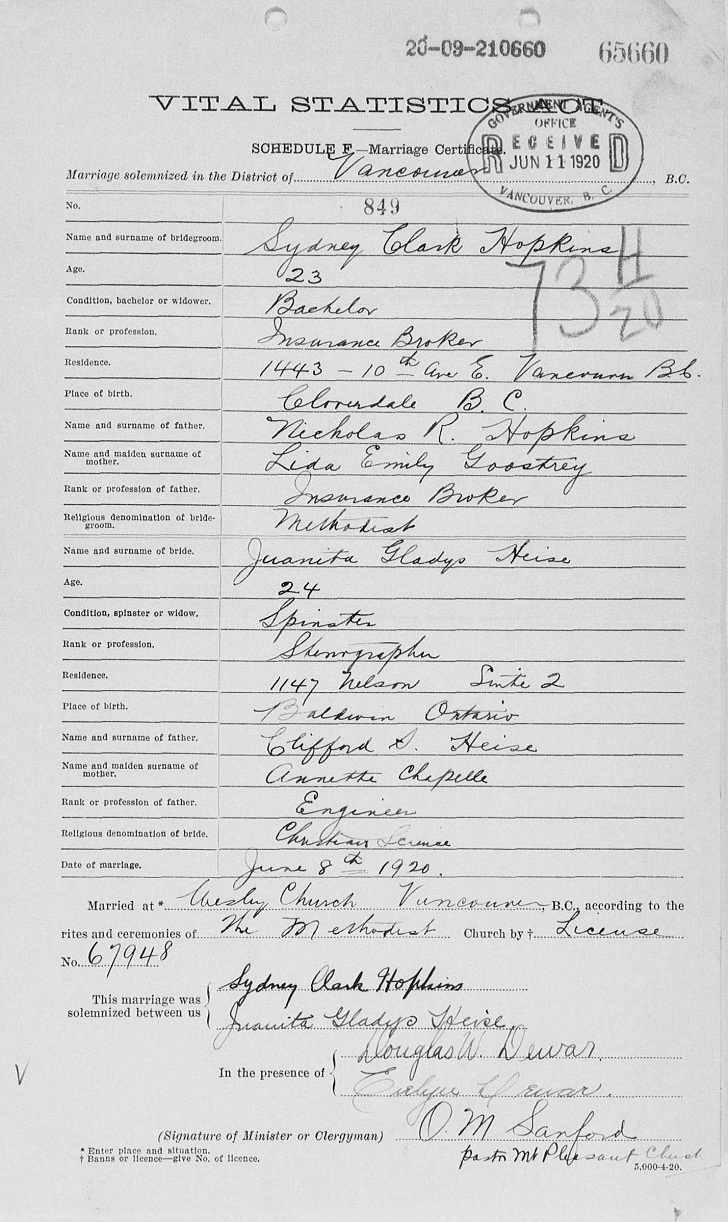 20-09-210660 65660
VITAL STATISTICS ACT
GOVERNMENT AGENT'S
OFFICE
RECEIVED
JUN 11 1920
VANCOUVER, B. C.
SCHEDULE F.—Marriage Certificate.
Marriage solemnized in the District of Vancouver, B.C.
No. 849
Name and surname of bridegroom. Sydney Clark Hopkins
73 H/20
Age. 23
Condition, bachelor or widower. Bachelor
Rank or profession. Insurance Broker
Residence. 1443 – 10th Ave E. Vancouver B.C.
Place of birth. Cloverdale B. C.
Name and surname of father. Nicholas R. Hopkins
Name and maiden surname of mother. Lida Emily Goostrey
Rank or profession of father. Insurance Broker
Religious denomination of bride-
groom. Methodist
Name and surname of bride. Juanita Gladys Heise
Age. 24
Condition, spinster or widow. Spinster
Rank or profession. Stenographer
Residence. 1147 Nelson Suite 2
Place of birth. Baldwin Ontario
Name and surname of father. Clifford S. Heise
Name and maiden surname of mother. Annette Chapelle
Rank or profession of father. Engineer
Religious denomination of bride. Christian Science
Date of marriage. June 8th 1920.
Married at * Wesley Church Vancouver, B.C., according to the
rites and ceremonies of The Methodist Church by † License
No. 67948
This marriage was solemnized between us
Sydney Clark Hopkins
Juanita Gladys Heise
In the presence of
Douglas W. Dewar.
Evelyn Dewar.
(Signature of Minister or Clergyman) O. M. Sanford
pastor Mt Pleasant Church
* Enter place and situation.
† Banns or licence—give No. of licence.
5,000-4-20.
V